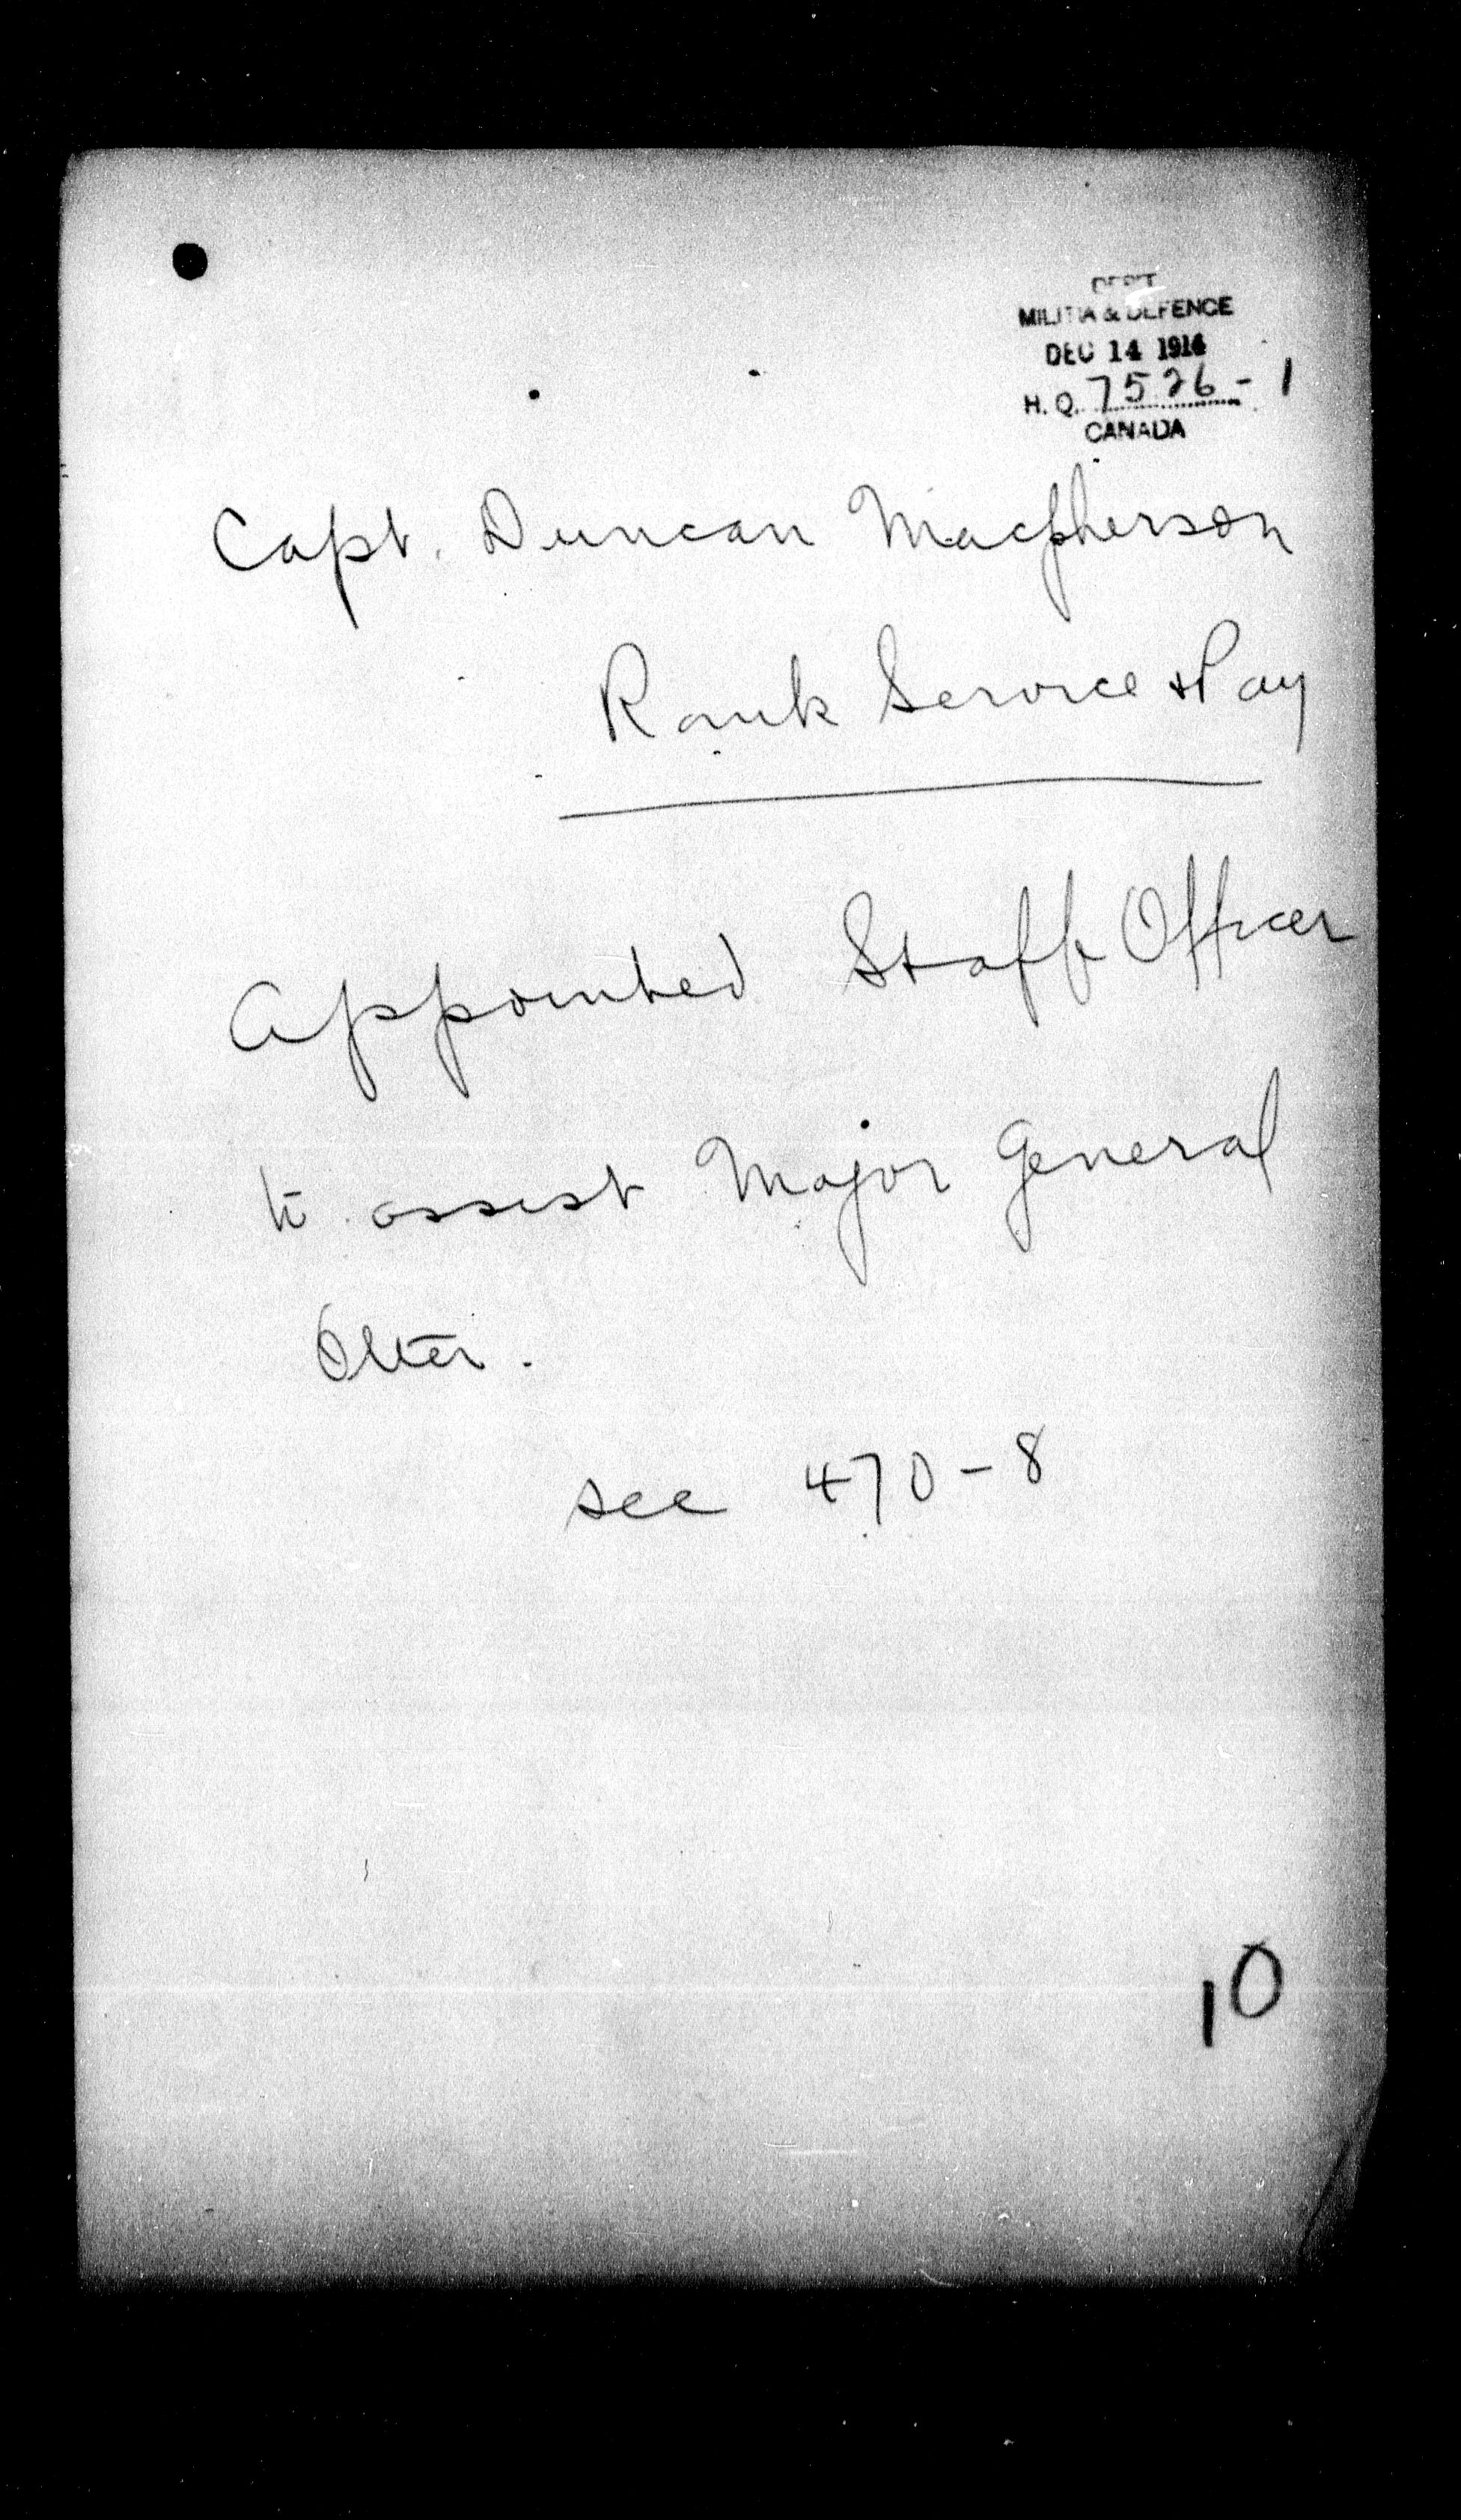 DEP'T
MILITIA & DEFENCE
DEC 14 1914
H. Q. 7526-1
CANADA
Capt. Duncan Macpherson
Rank Service & Pay
Appointed Staff Officer
to assist Major General
Otter.
see 470-8
10